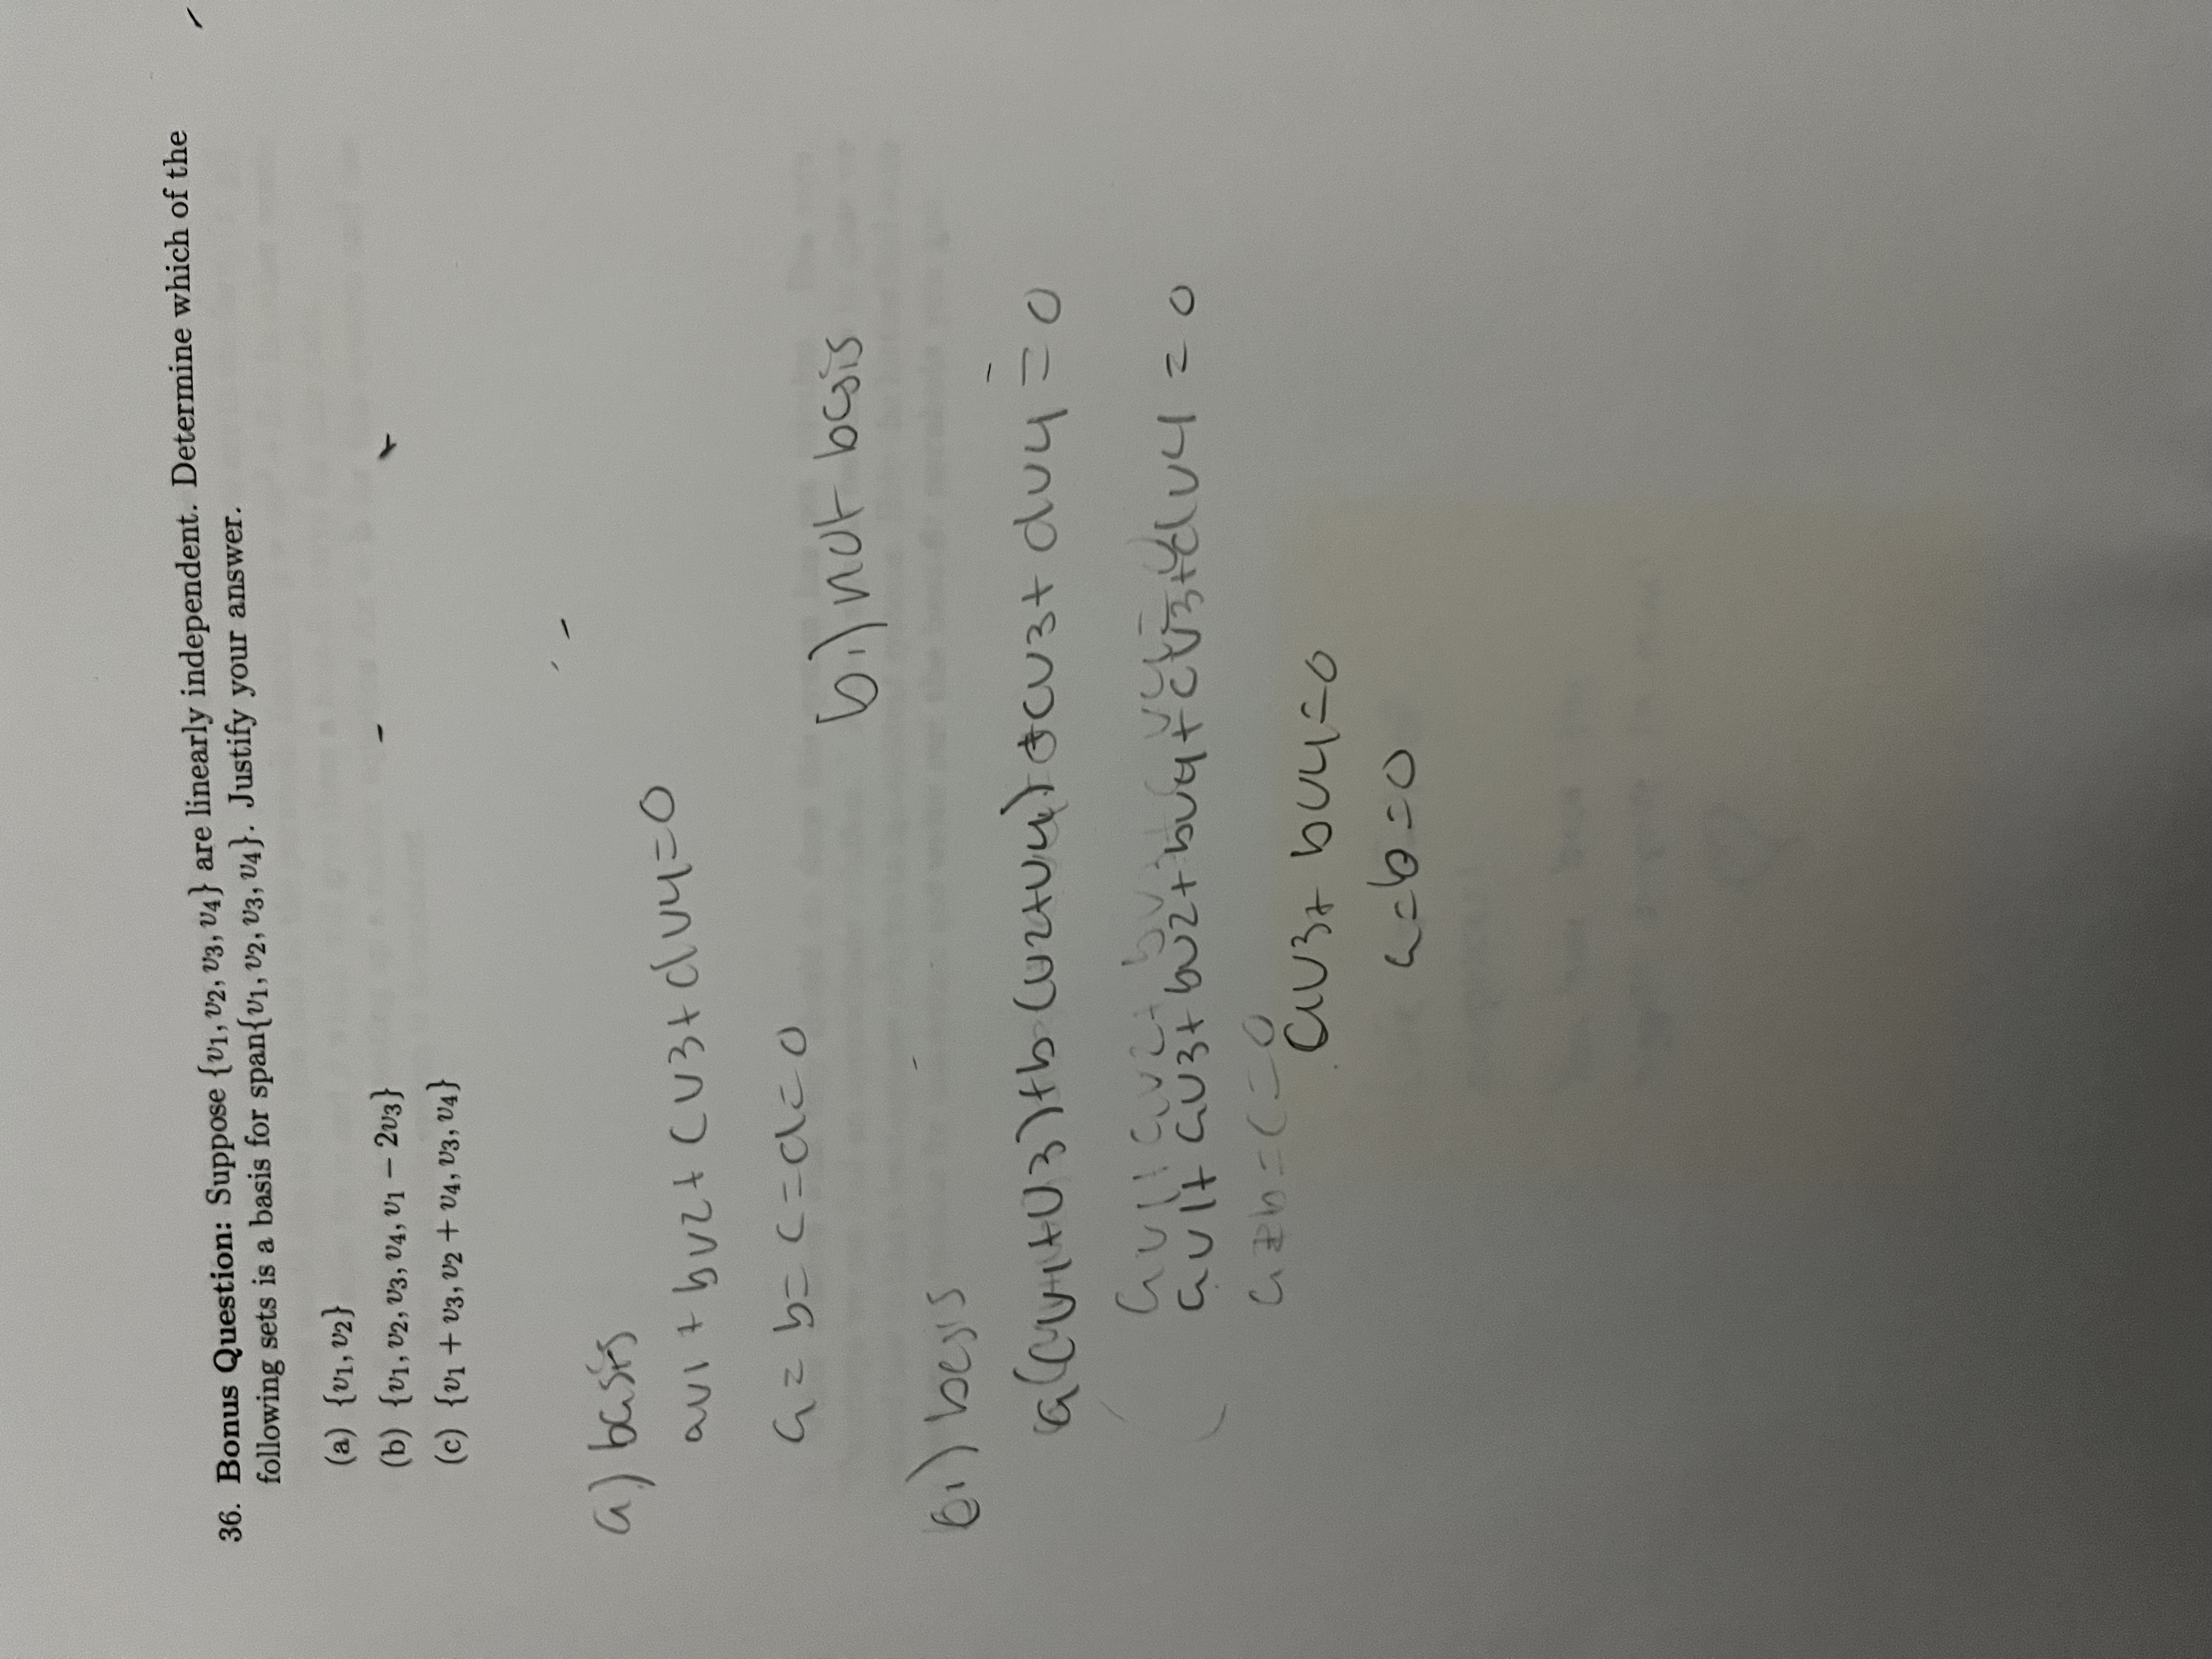 36. Bonus Question: Suppose {v1, v2, v3, v4} are linearly independent. Determine which of the
following sets is a basis for span{v1, v2, v3, v4}. Justify your answer.
(a) {v1, v2}
(b) {v1, v2, v3, v4, v1 − 2v3}
(c) {v1 + v3, v2 + v4, v3, v4}
a) basis
av1 + bv2 + cv3 + dv4 = 0
a = b = c = d = 0
b.) not basis
c.) basis
a(v1+v3)+b(v2+v4)+cv3+dv4 = 0
av1+av3+bv2+bv4+cv3+dv4 = 0
a=b=c=0
av3+bv4=0
a=b=0